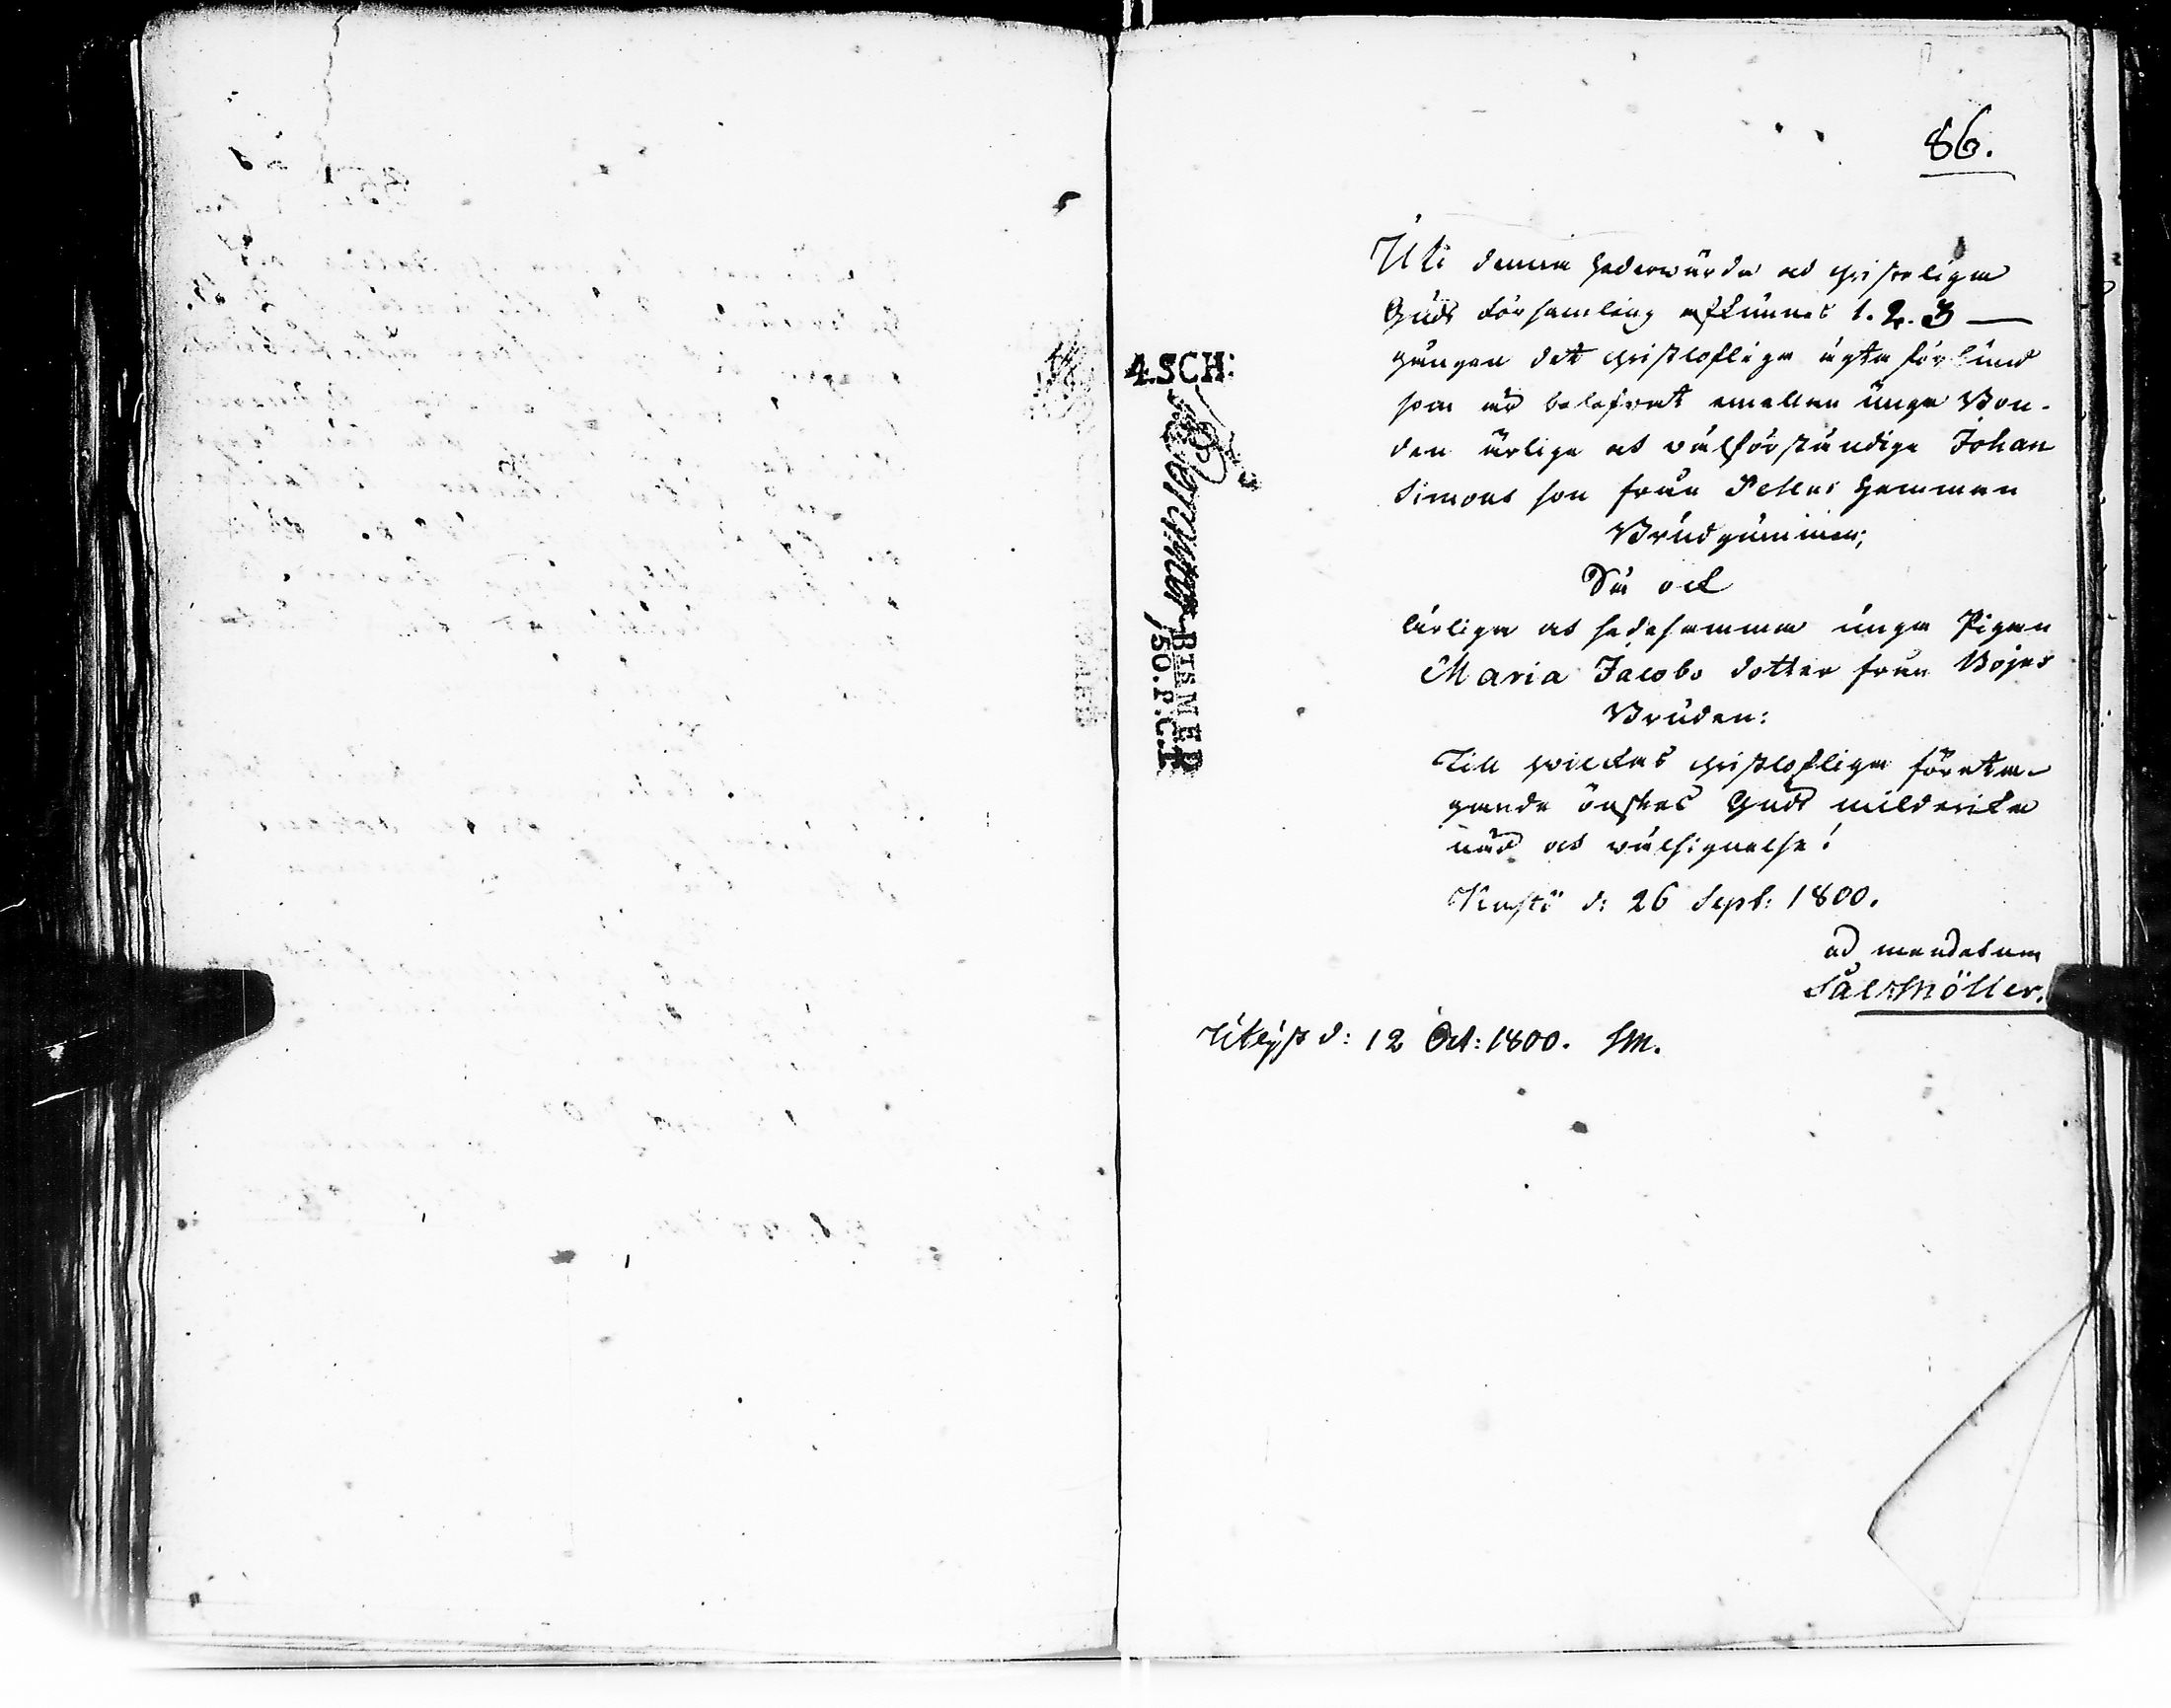 86.
Uti denna hedervärda och christeliga
Guds församling afkunnas 1. 2. 3 —
gången det christloflige ägta förbund
som är belefvat emellan unge Bon-
den ärlige och välförståndige Johan
Simons son från Pellas hemman
Brudgummen;
Så ock
ärliga och sedesamma unga Pigan
Maria Jacobs dotter från Böjas
Bruden:
Till hvilckas christlofliga företa-
gande önskas Guds milderika
nåd och välsignelse!
d: 26 Sept: 1800.
ad mandatum
Salzmöller.
Utlyst d: 12 Oct: 1800. SM.
4.SCH:
50.P:C:T